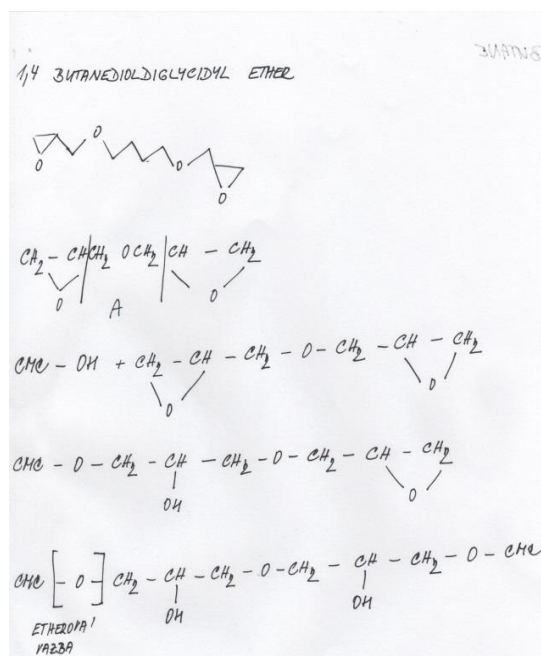 BUTANE
1,4 BUTANEDIOLDIGLYCIDYL ETHER
O O O O
CH2 – CH CH2 OCH2 CH – CH2
O A O
CMC – OH + CH2 – CH – CH2 – O – CH2 – CH – CH2
O O
CMC – O – CH2 – CH – CH2 – O – CH2 – CH – CH2
OH O
CMC [– O –] CH2 – CH – CH2 – O – CH2 – CH – CH2 – O – CMC
OH OH
ETHEROVA'
VAZBA